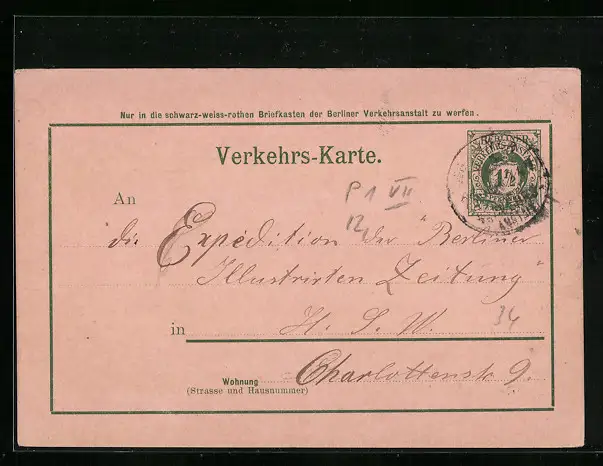 Nur in die schwarz-weiss-rothen Briefkasten der Berliner Verkehrsanstalt zu werfen.
Verkehrs-Karte.
1½
P 1 VII
12,
An
die Expedition der "Berliner
Illustrirten Zeitung"
34
in H. S. W.
Charlottenstr 9.
Wohnung
(Strasse und Hausnummer)